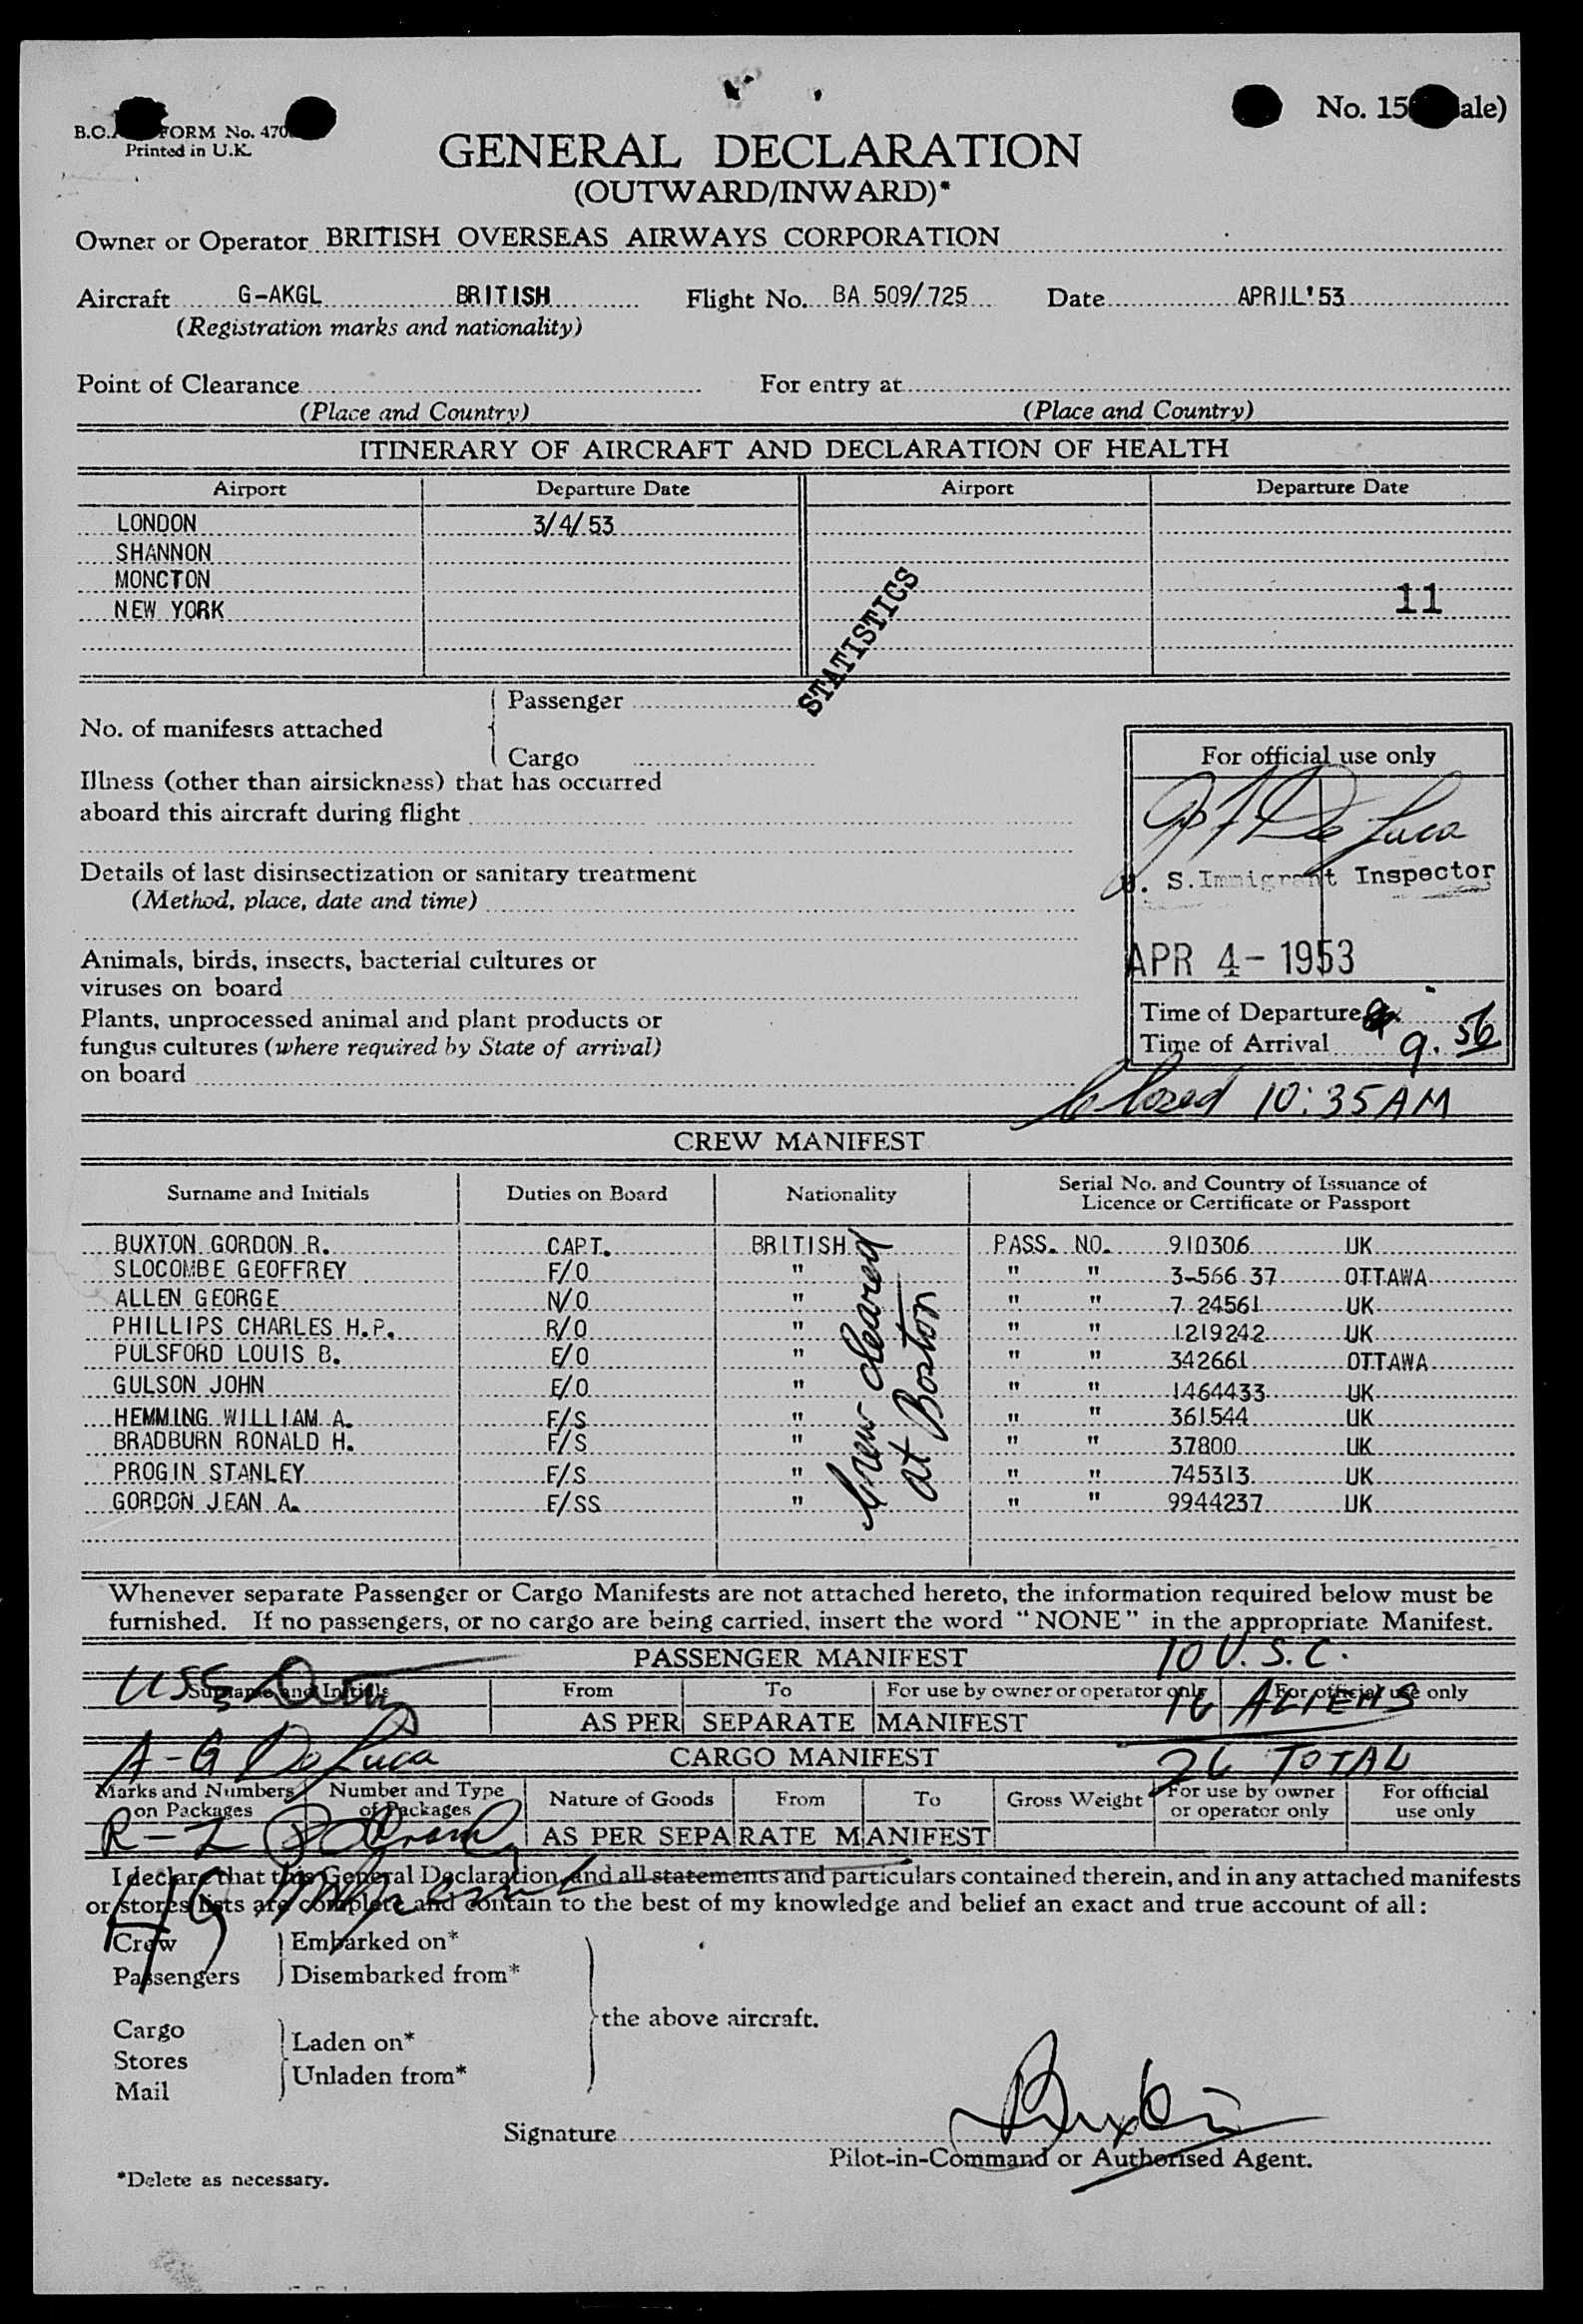 No. 15 ale)
B.O. FORM No. 470
Printed in U.K.
GENERAL DECLARATION
(OUTWARD/INWARD)*
Owner or Operator BRITISH OVERSEAS AIRWAYS CORPORATION
Aircraft G-AKGL BRITISH Flight No. BA 509/725 Date APRIL'53
(Registration marks and nationality)
Point of Clearance For entry at
(Place and Country) (Place and Country)
ITINERARY OF AIRCRAFT AND DECLARATION OF HEALTH
Airport Departure Date Airport Departure Date
LONDON 3/4/53
SHANNON
MONCTON
NEW YORK 11
STATISTICS
Passenger
No. of manifests attached
Cargo
Illness (other than airsickness) that has occurred
aboard this aircraft during flight
Details of last disinsectization or sanitary treatment
(Method, place, date and time)
Animals, birds, insects, bacterial cultures or
viruses on board
Plants, unprocessed animal and plant products or
fungus cultures (where required by State of arrival)
on board
For official use only
De Luca
U. S. Immigrant Inspector
APR 4- 1953
Time of Departure
Time of Arrival 9.56
Closed 10:35 AM
CREW MANIFEST
Surname and Initials Duties on Board Nationality Serial No. and Country of Issuance of
Licence or Certificate or Passport
BUXTON GORDON R. CAPT. BRITISH PASS. NO. 910306 UK
SLOCOMBE GEOFFREY F/O " " " 3-566 37 OTTAWA
ALLEN GEORGE N/O " " " 7 24561 UK
PHILLIPS CHARLES H.P. R/O " " " 1219242 UK
PULSFORD LOUIS B. E/O " " " 342661 OTTAWA
GULSON JOHN E/O " " " 1464433 UK
HEMMING WILLIAM A. F/S " " " 361544 UK
BRADBURN RONALD H. F/S " " " 37800 UK
PROGIN STANLEY F/S " " " 745313 UK
GORDON JEAN A. F/SS " " " 9944237 UK
Crew cleared
at Boston
Whenever separate Passenger or Cargo Manifests are not attached hereto, the information required below must be
furnished. If no passengers, or no cargo are being carried, insert the word "NONE" in the appropriate Manifest.
PASSENGER MANIFEST 10 U.S.C.
Surname and Initials From To For use by owner or operator only For official use only
16 ALIENS
AS PER SEPARATE MANIFEST
A-G De Luca CARGO MANIFEST 26 TOTAL
Marks and Numbers on Packages Number and Type of Packages Nature of Goods From To Gross Weight For use by owner or operator only For official use only
R-Z AS PER SEPARATE MANIFEST
I declare that this General Declaration, and all statements and particulars contained therein, and in any attached manifests
or stores lists are complete and contain to the best of my knowledge and belief an exact and true account of all:
Crew Embarked on*
Passengers Disembarked from*
the above aircraft.
Cargo
Laden on*
Stores
Unladen from*
Mail
Signature Buxton
Pilot-in-Command or Authorised Agent.
*Delete as necessary.